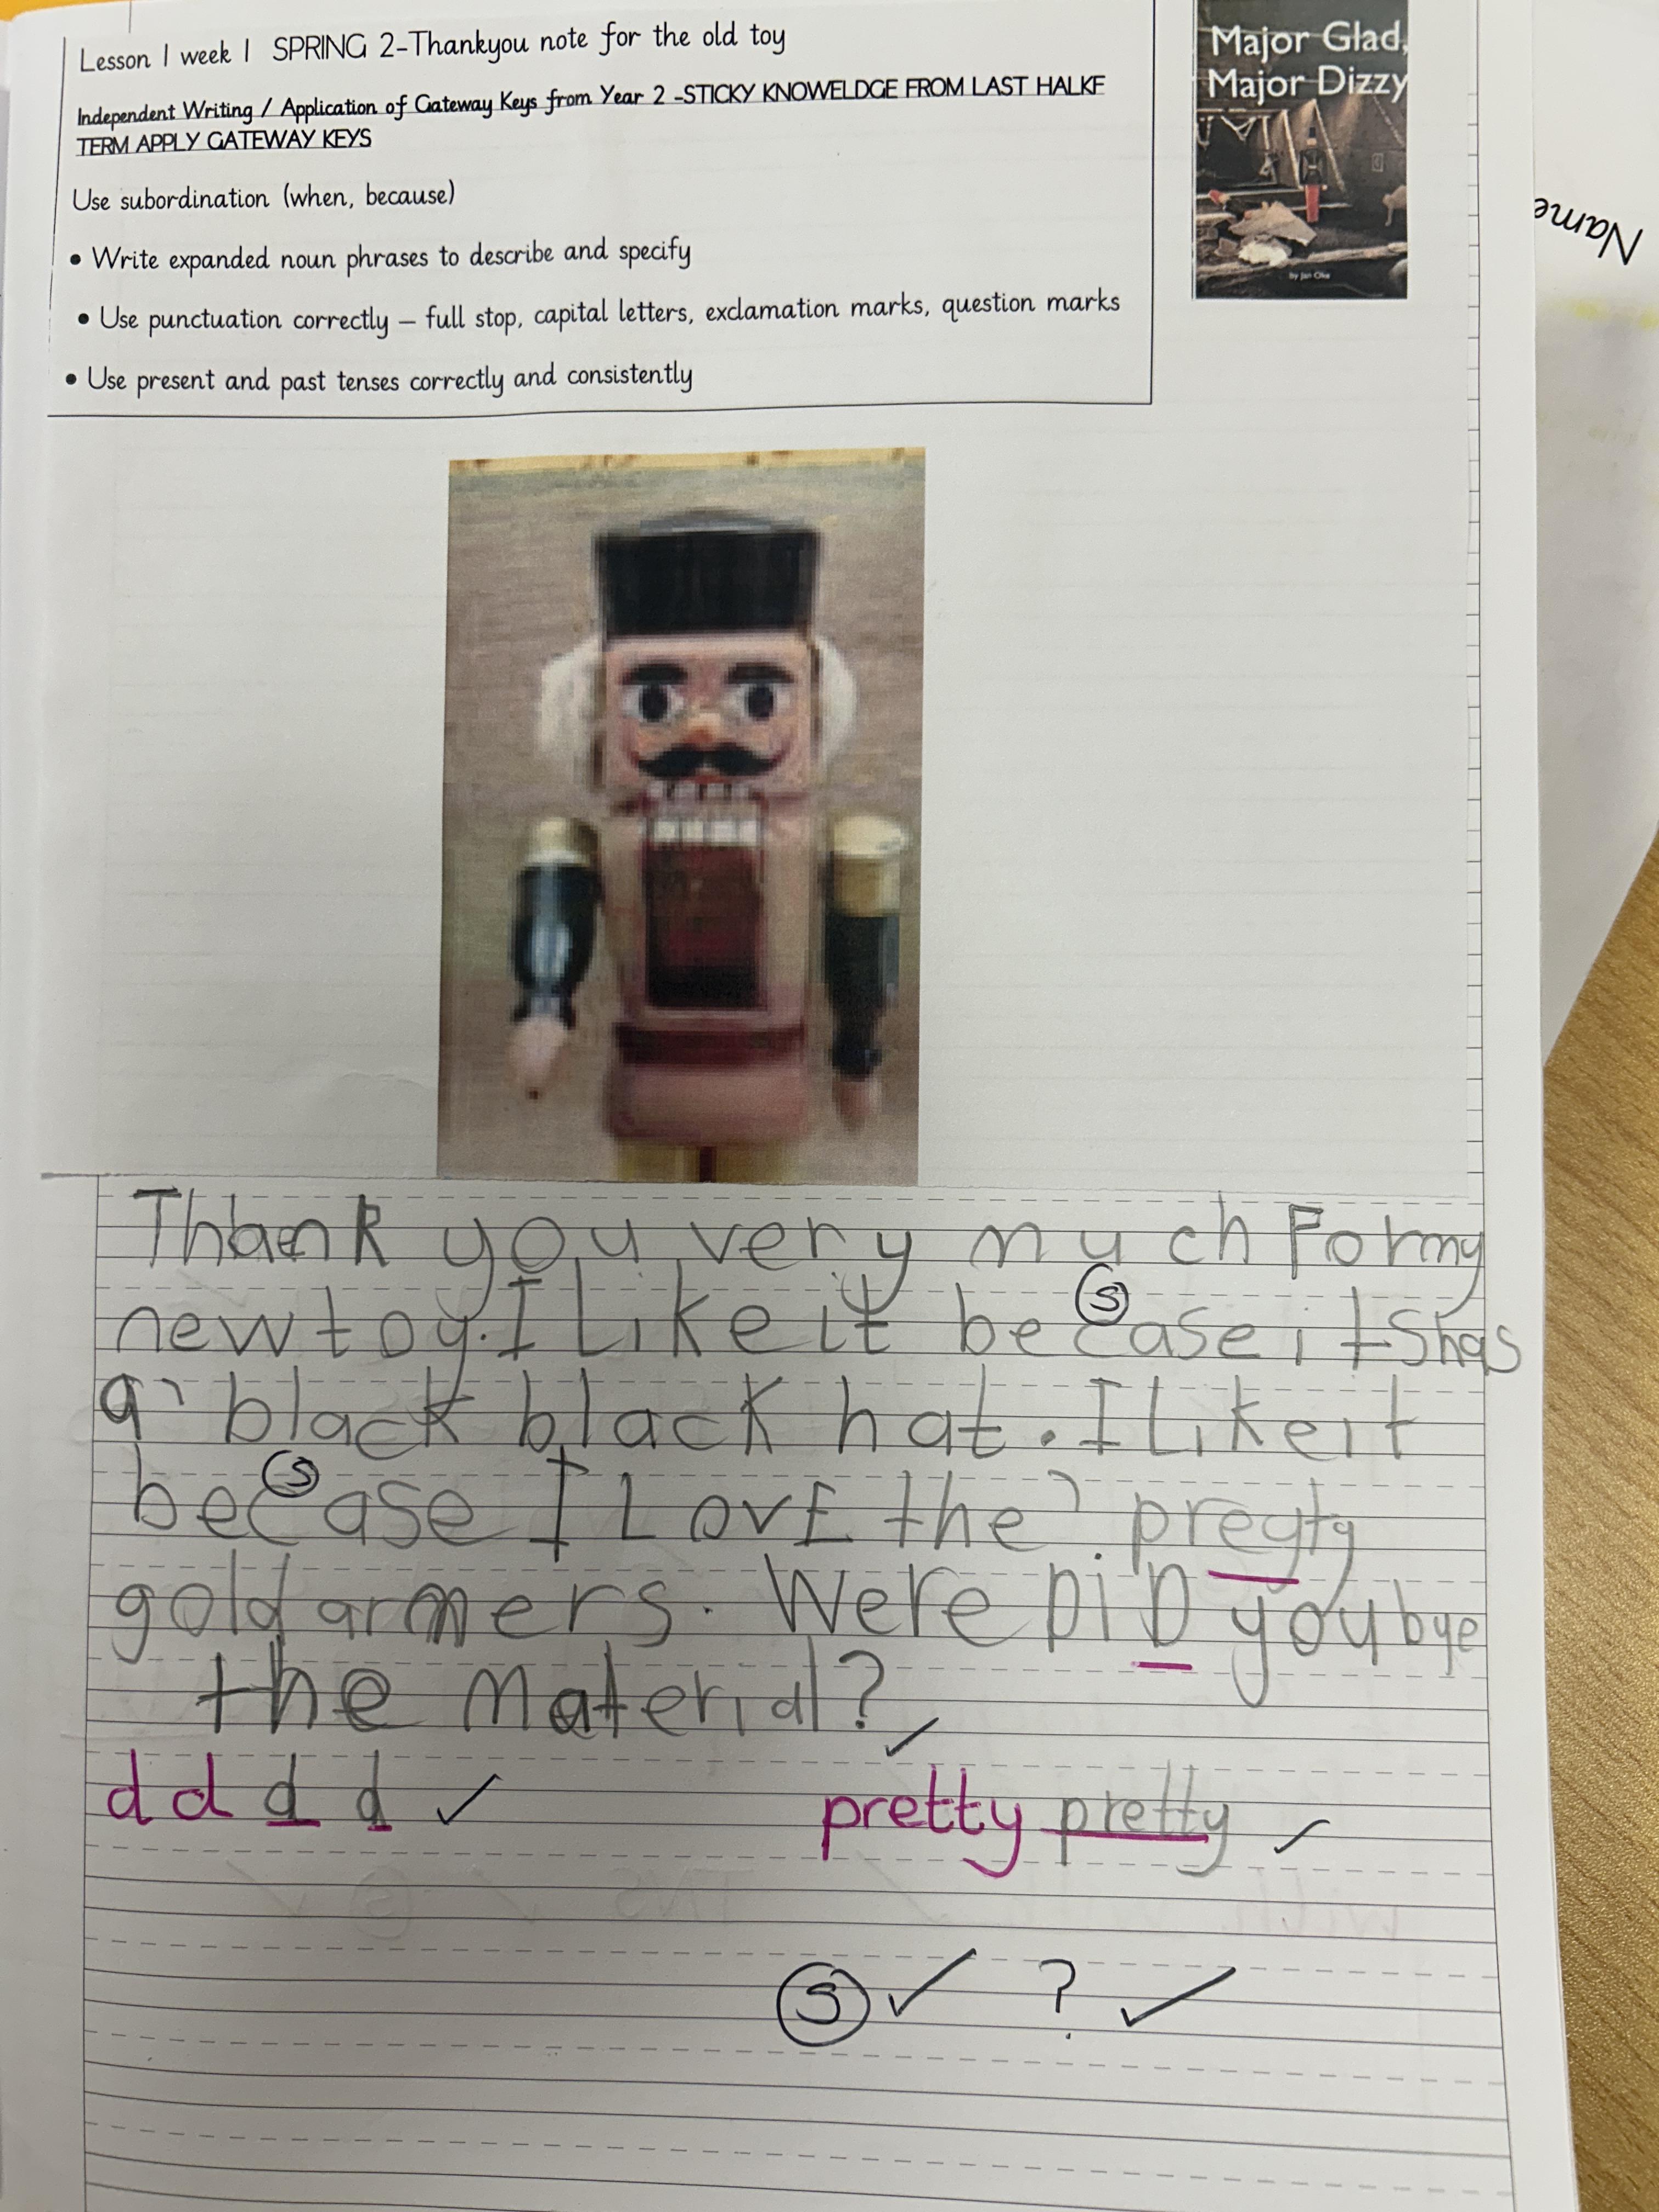 Lesson 1 week 1 SPRING 2-Thankyou note for the old toy
Independent Writing / Application of Gateway Keys from Year 2 -STICKY KNOWELDGE FROM LAST HALKF
TERM APPLY GATEWAY KEYS
Use subordination (when, because)
• Write expanded noun phrases to describe and specify
• Use punctuation correctly – full stop, capital letters, exclamation marks, question marks
• Use present and past tenses correctly and consistently
Major Glad,
Major Dizzy
by Jan Oke
Name
Thank you very much For my
new toy. I Like it becase it shas
a black black hat. I Like it
becase I LOVE the preyty
gold armers. Were DiD you bye
the Material?
S
S
d d d d ✓
pretty pretty ✓
S ✓ ? ✓